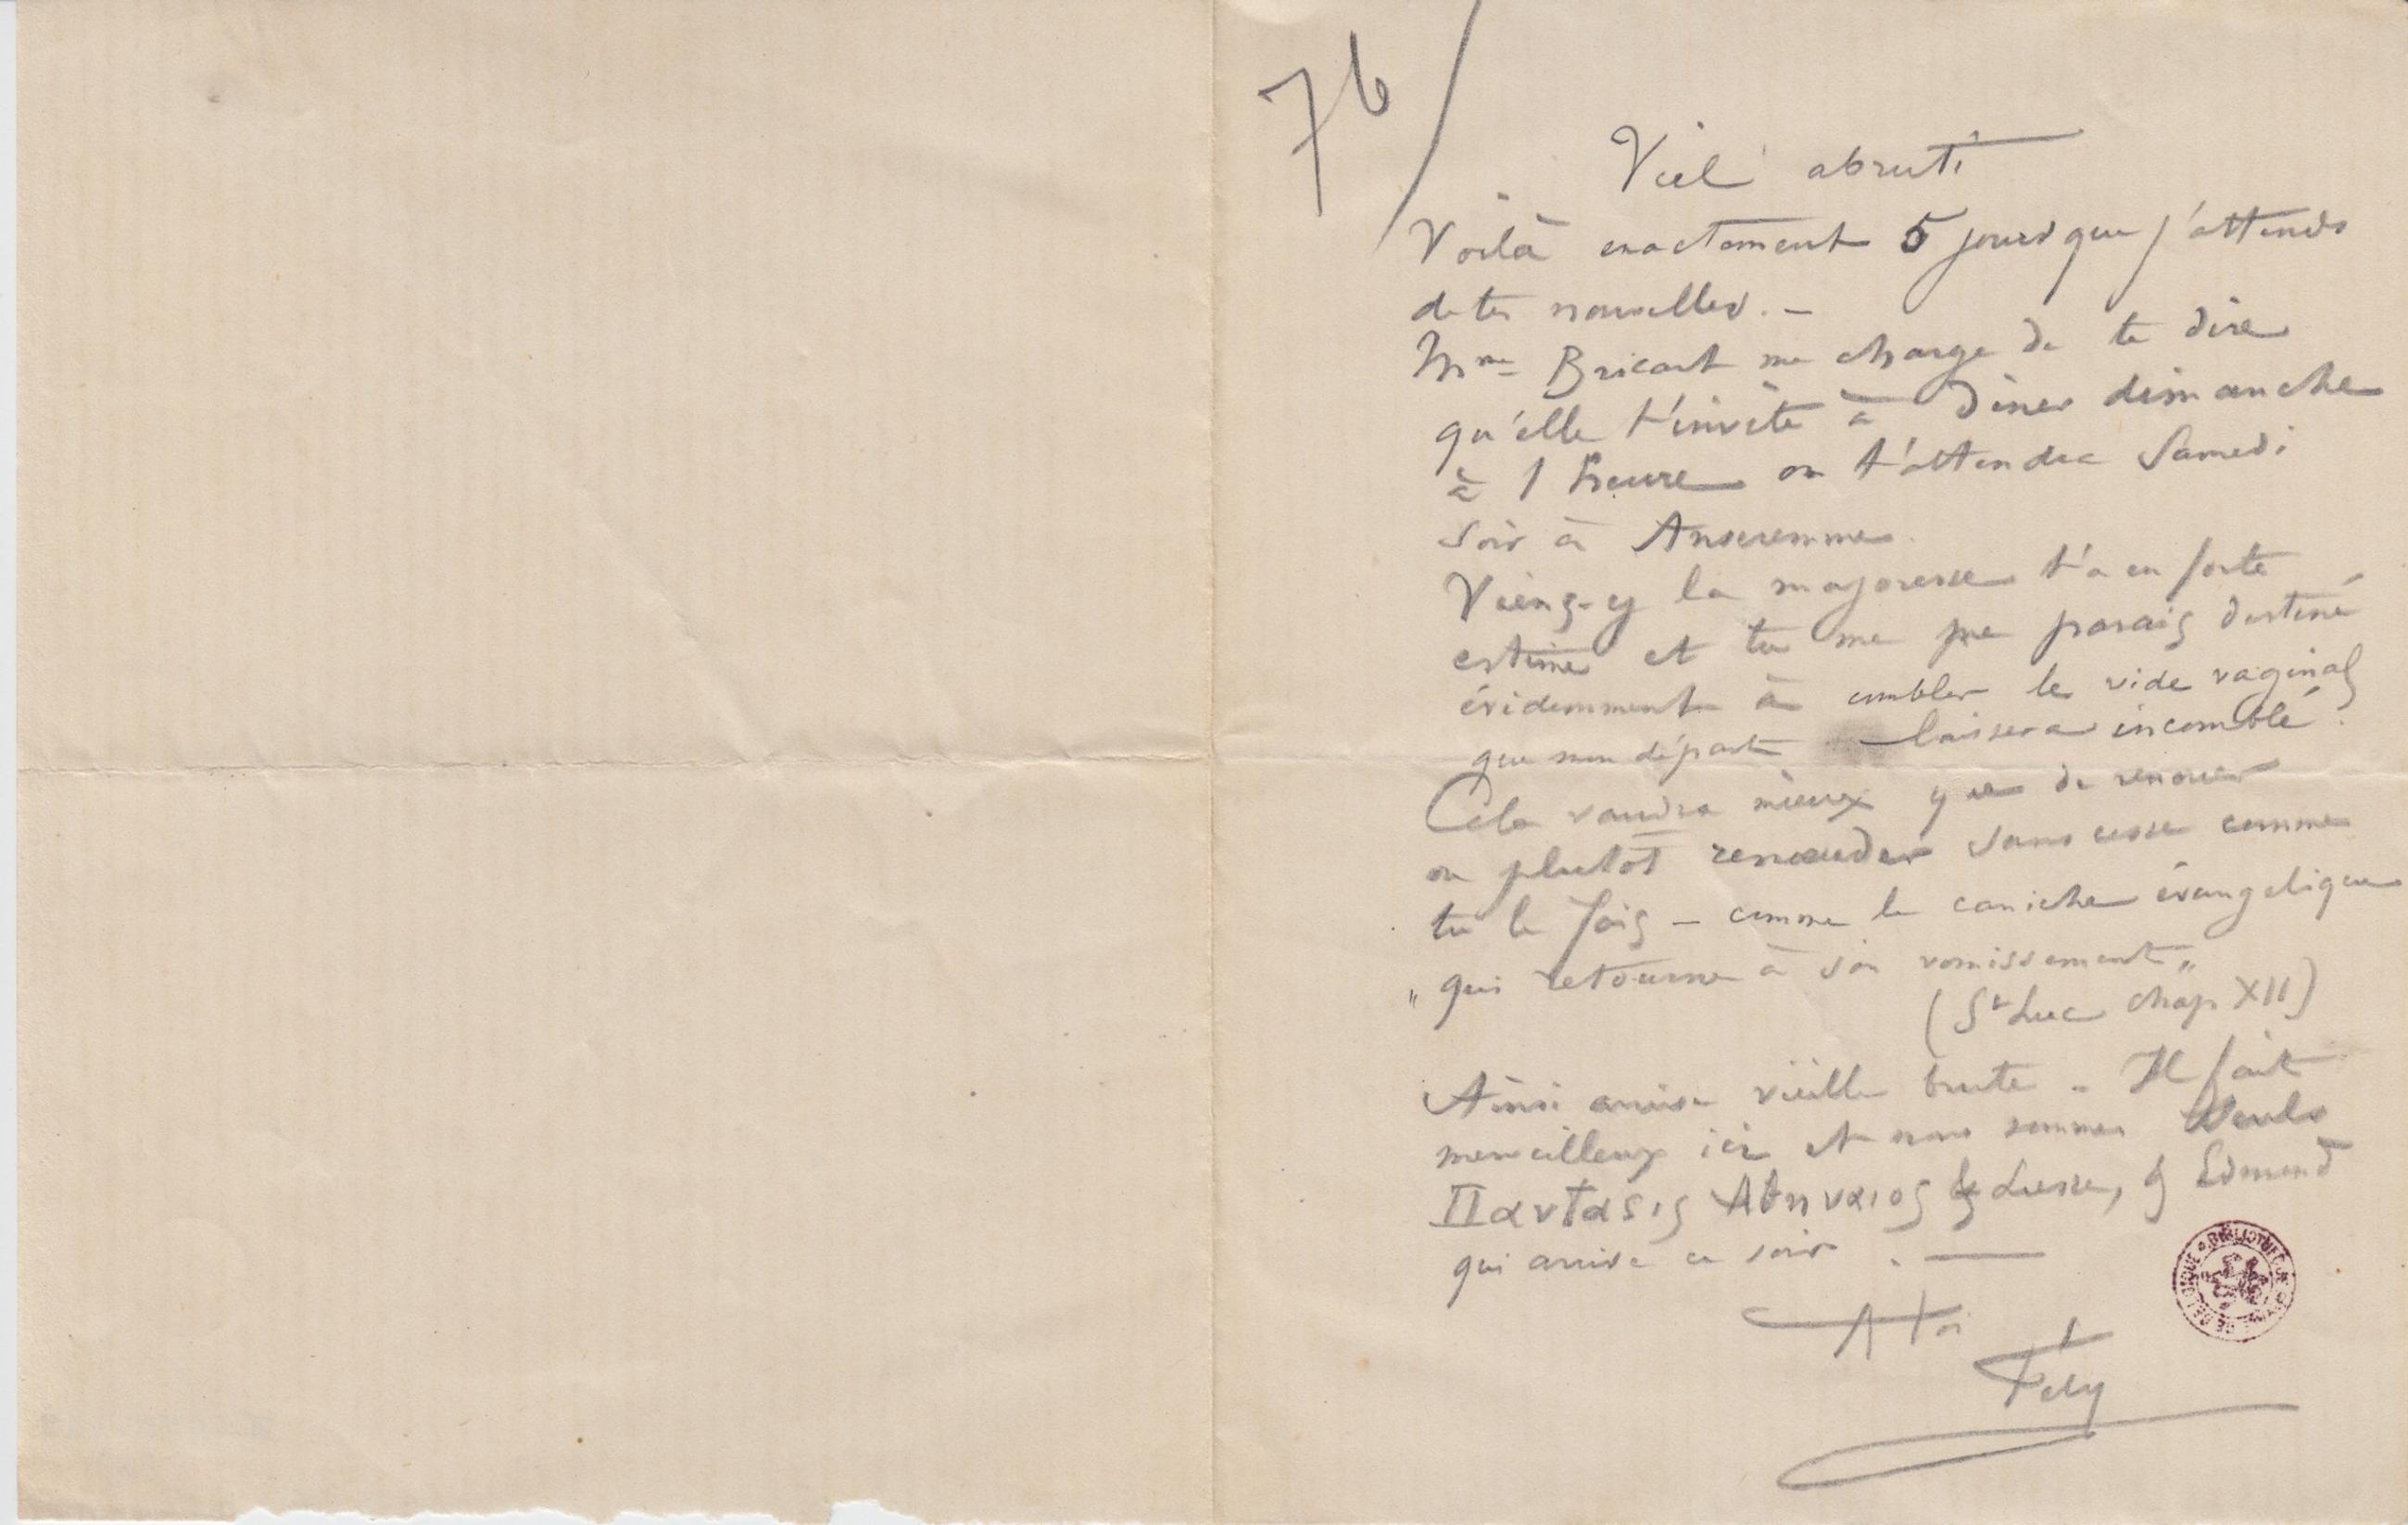 76/
Viel abruti
Voilà exactement 5 jours que j'attends
de tes nouvelles. –
Mme Bricart me charge de te dire
qu'elle t'invite à diner dimanche
à 1 heure on t'attendra Samedi
soir à Anseremme.
Viens-y la majoresse t'a en forte
estime et tu me me parais destiné
évidemment à combler le vide vaginal
que mon départ laissera incomblé.
Cela vaudra mieux que de renouer
ou plutôt renouder sans cesse comme
tu le fais – comme le caniche évangelique
" qui retourne à son vomissement "
(St Luc chap XII)
Ainsi arrive vieille brute – Il fait
merveilleux ici et nous sommes seuls
Πανταsις Αθηναιος & Liesse, & Edmond
qui arrive ce soir. —
A toi
Fély